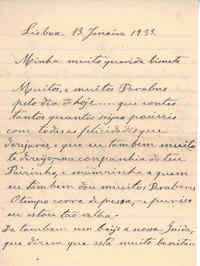 Lisboa 13 Janeiro 1933.
Minha muito querida bisneta
Muitos, e muitos Parabens
pelo dia d'hoje... que contes
tantos quantos eu possa
com todas as felicidades que
desejares, e que eu tambem muito
te desejo, na companhia de teu
Paizinho, e mamãzinha a quem
eu tambem dou muitos Parabens
O tempo corre depressa, e por isso
eu estou tão velha.
Dá tambem um beijo a nossa
que dizem que está muito bonita